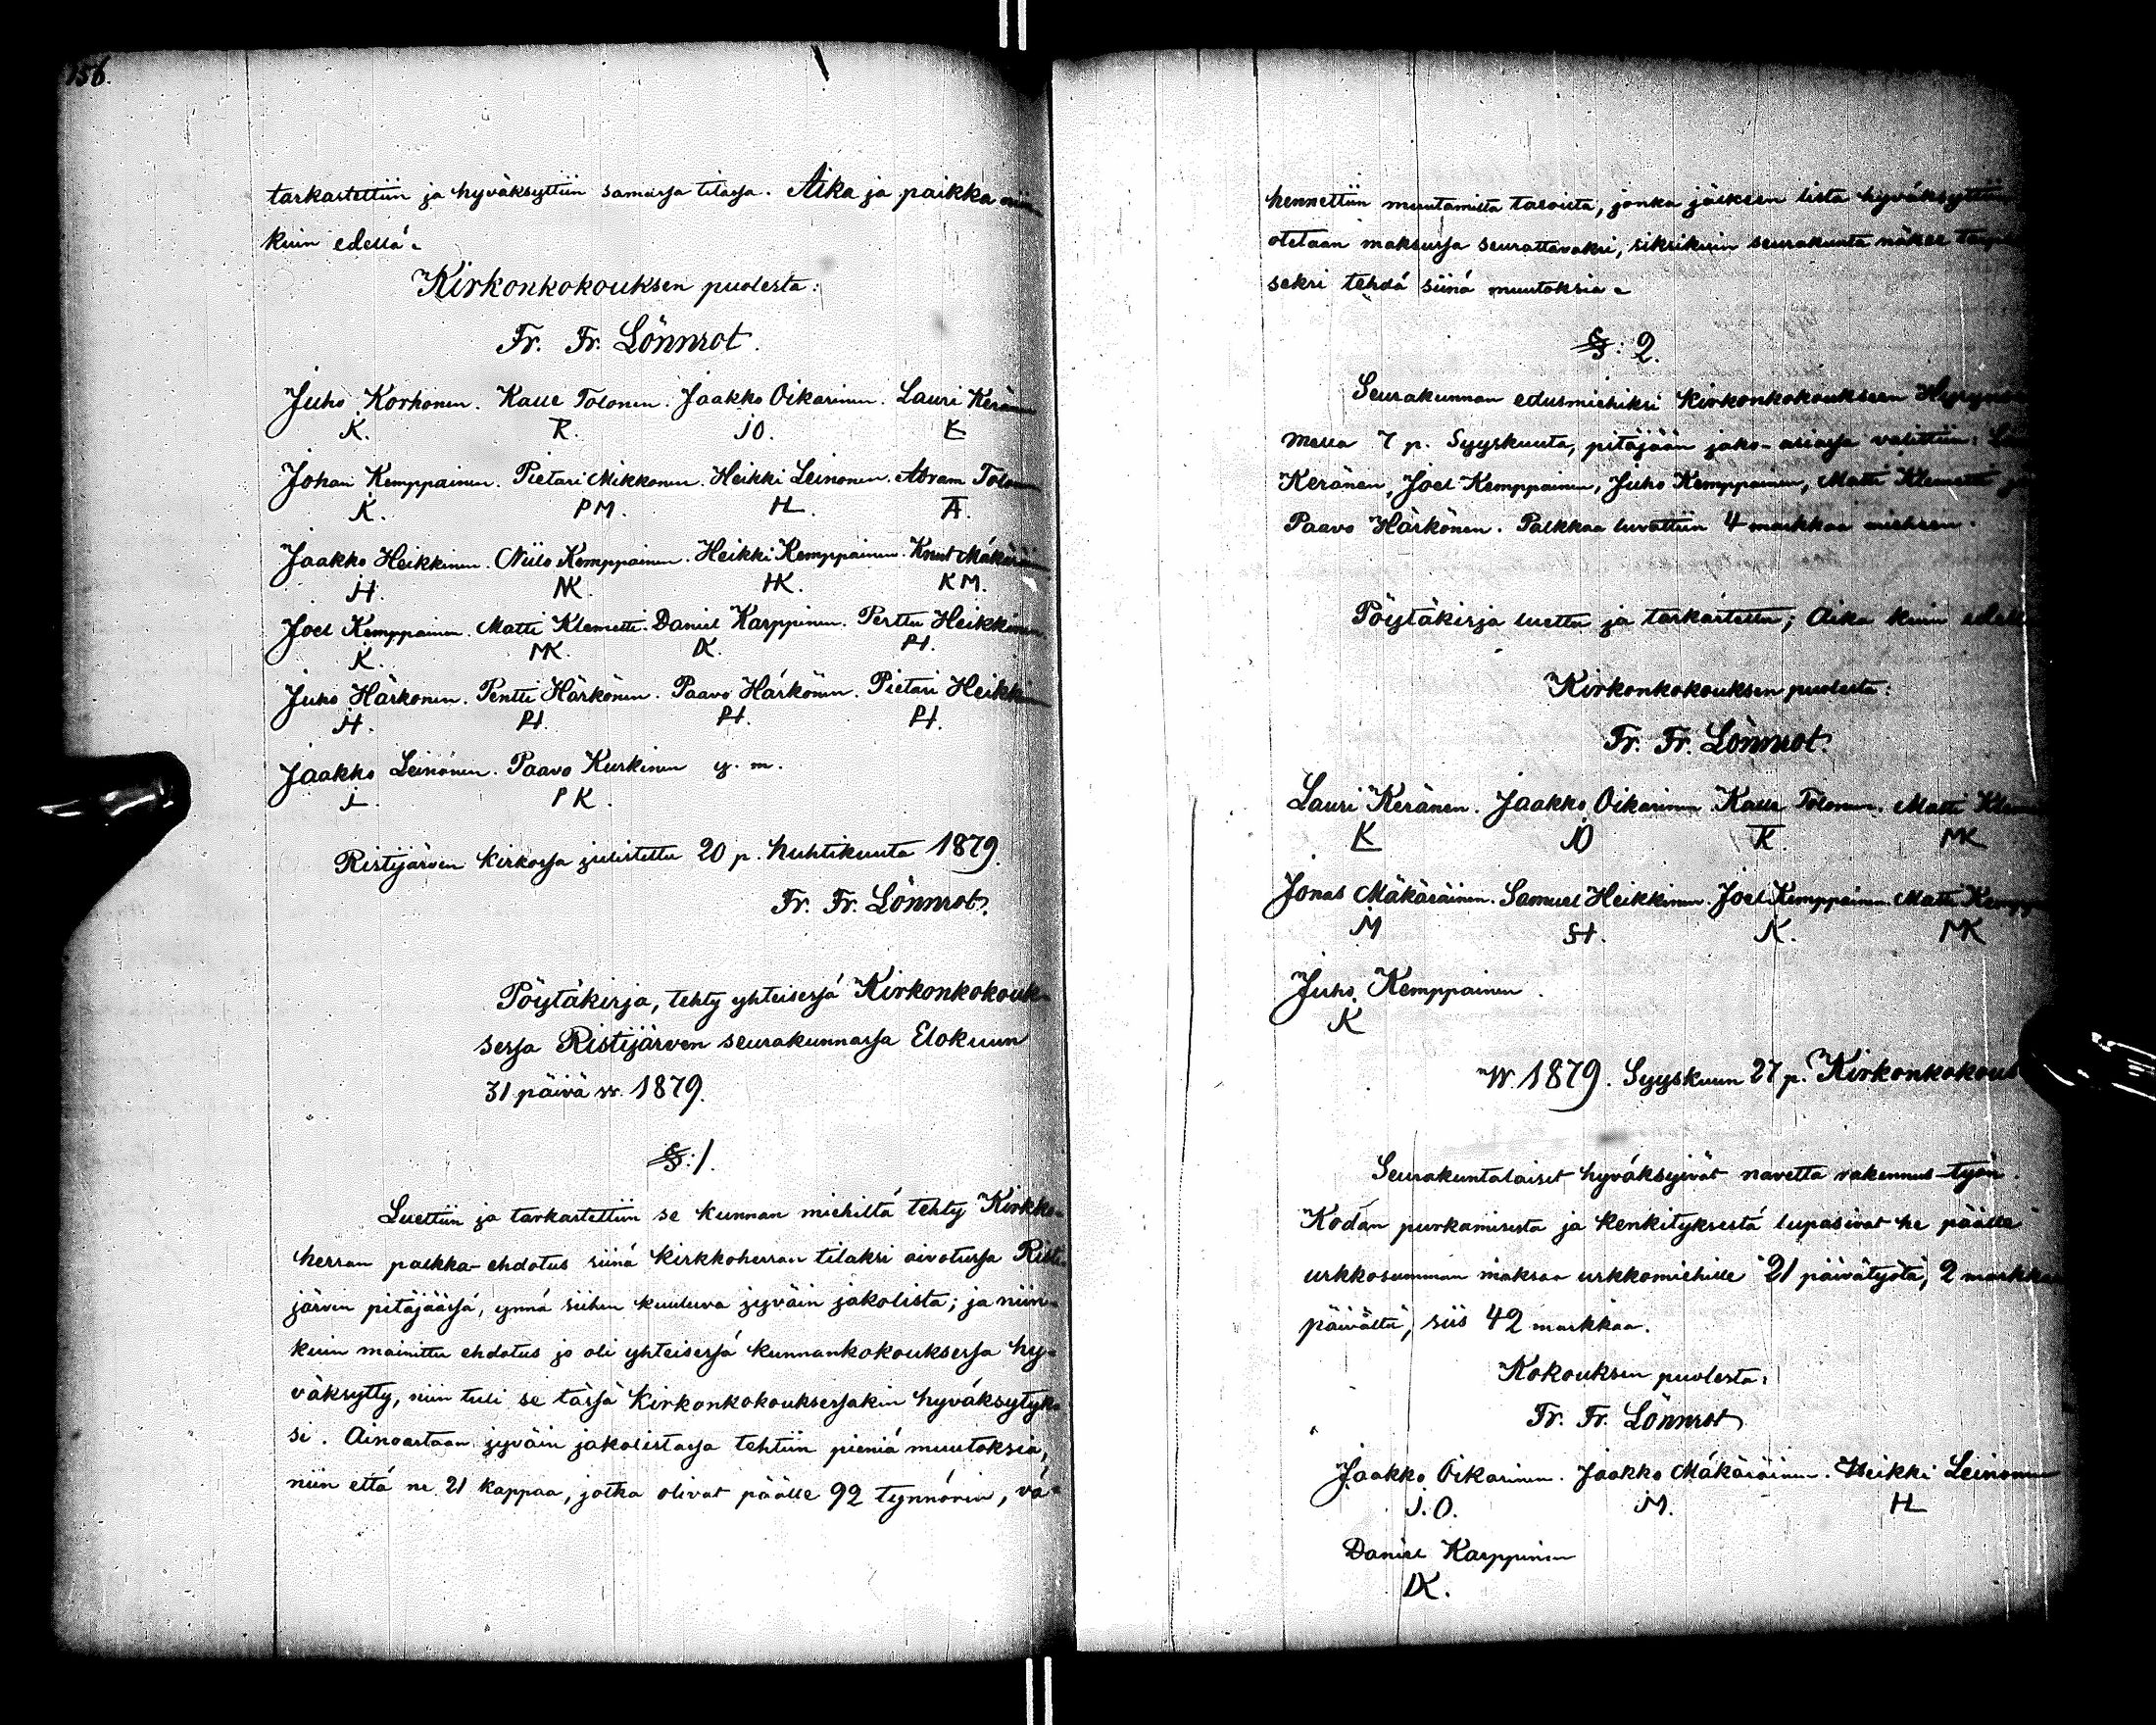 156.
tarkastettiin ja hyväksyttiin samassa tilassa. Aika ja paikka niin-
kuin edellä.
Kirkonkokouksen puolesta:
Fr. Fr. Lönnrot.
Juho Korhonen. Kalle Tolonen. Jaakko Oikarinen. Lauri Keränen
K. K. JO. K
Johan Kemppainen. Pietari Mikkonen. Heikki Leinonen. Abram Tolonen
K. PM. HL. A.
Jaakko Heikkinen. Niilo Kemppainen. Heikki Kemppainen. Knut Mäkäräinen
JH. NK. HK. KM.
Joel Kemppainen. Matti Klemetti. Daniel Karppinen. Perttu Heikkinen.
K. MK. DK. PH.
Juho Härkönen. Pentti Härkönen. Paavo Härkönen. Pietari Heikkinen
JH. PH. PH. PH.
Jaakko Leinonen. Paavo Kurkinen y. m.
JL. PK.
Ristijärven kirkossa julistettu 20 p. huhtikuuta 1879.
Fr. Fr. Lönnrot.
Pöytäkirja, tehty yhteisessä Kirkonkokouk-
sessa Ristijärven seurakunnassa Elokuun
31 päivä w. 1879.
§: 1.
Luettiin ja tarkastettiin se kunnan miehiltä tehty Kirkko-
herran palkka-ehdotus siinä kirkkoherran tilaksi aivotussa Risti-
järven pitäjäässä, ynnä siihen kuuluva jyväin jakolista; ja niin-
kuin mainittu ehdotus jo oli yhteisessä kunnankokouksessa hy-
väksytty, niin tuli se tässä Kirkonkokouksessakin hyväksytyk-
si. Ainoastaan jyväin jakolistassa tehtiin pieniä muutoksia,
niin että ne 21 kappaa, jotka olivat päälle 92 tynnörin, vä-
hennettiin muutamista taloista, jonka jälkeen lista hyväksyttiin
otetaan maksussa seurattavaksi, siksikuin seurakunta näkee
seksi tehdä siinä muutoksia.
§: 2.
Seurakunnan edusmiehiksi Kirkonkokoukseen Hyrynsal-
mella 7 p. Syyskuuta, pitäjään jako-asiassa valittiin: Lauri
Keränen, Joel Kemppainen, Juho Kemppainen, Matti Klemetti ja
Paavo Härkönen. Palkkaa luvattiin 4 markkaa mieheen.
Pöytäkirja luettu ja tarkastettu; Aika kuin edellä
Kirkonkokouksen puolesta:
Fr. Fr. Lönnrot.
Lauri Keränen. Jaakko Oikarinen Kalle Tolonen. Matti Klemetti
K JO K. MK
Jonas Mäkäräinen. Samuel Heikkinen. Joel Kemppainen. Matti Kemppainen
JM SH. K. MK
Juho Kemppainen.
K
W. 1879. Syyskuun 27 p. Kirkonkokous
Seurakuntalaiset hyväksyivät navetta rakennus-työn.
Kodan purkamisesta ja kenkityksestä lupasivat he päälle
urkkosumman maksaa urkkomiehille 21 päivätyötä, 2 markkaa
päivältä, siis 42 markkaa.
Kokouksen puolesta:
Fr. Fr. Lönnrot
Jaakko Oikarinen. Jaakko Mäkäräinen. Heikki Leinonen
J.O. JM. HL
Daniel Karppinen
DK.